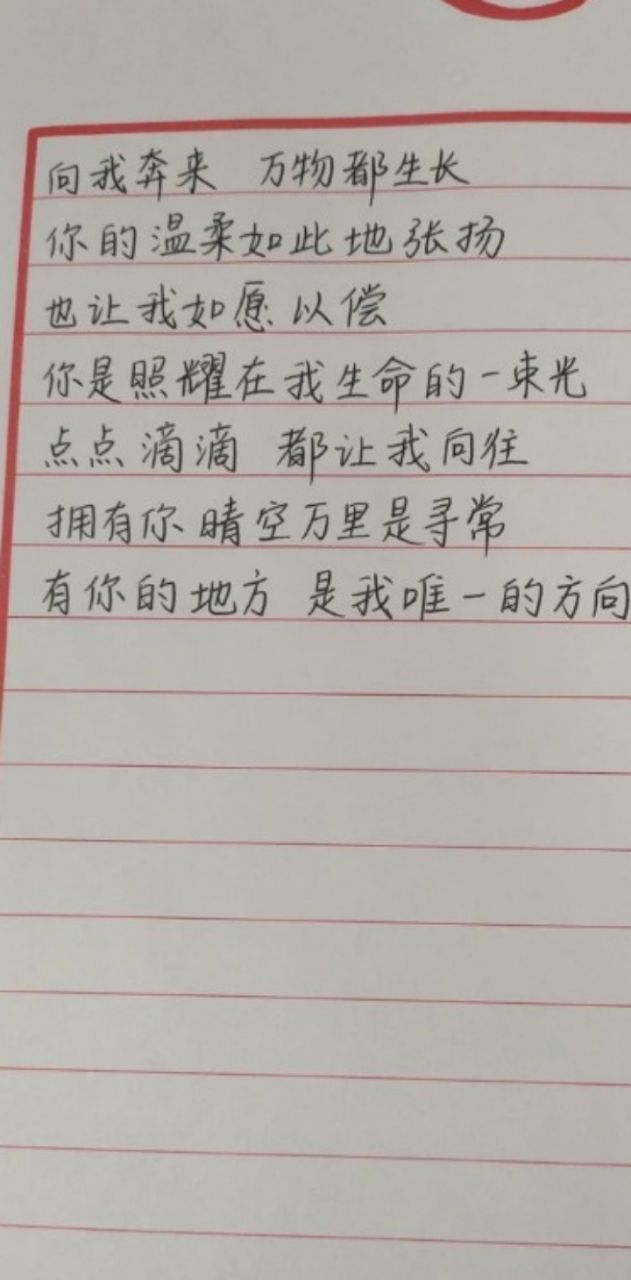 向我奔来 万物都生长
你的温柔如此地张扬
也让我如愿以偿
你是照耀在我生命的一束光
点点滴滴 都让我向往
拥有你 晴空万里是寻常
有你的地方 是我唯一的方向